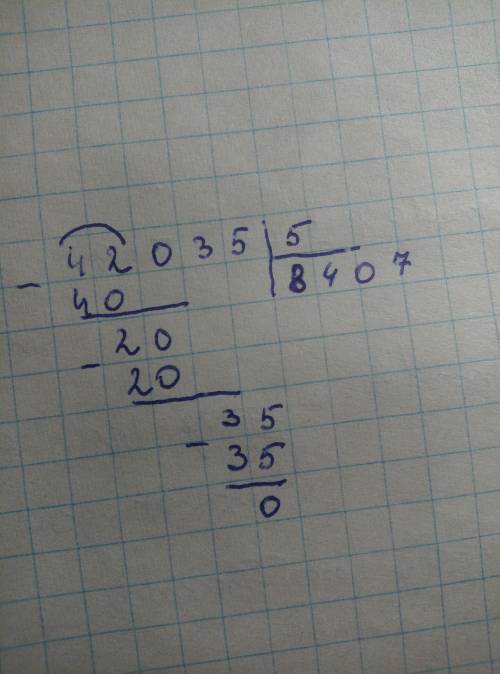 42035 5
- 8407
40
20
-
20
35
-
35
0